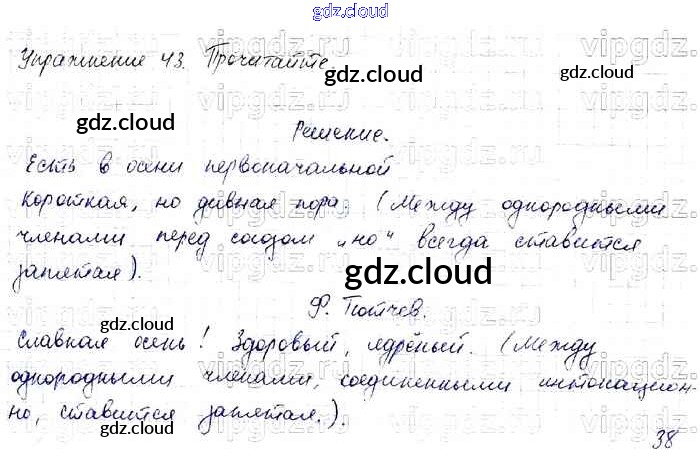 gdz.cloud
Упражнение 43. Прочитайте.
gdz.cloud
gdz.cloud
Решение.
Есть в осени первоначальной
Короткая, но дивная пора. (Между однородными
членами перед союзом „но“ всегда ставится
запятая).
gdz.cloud
Ф. Тютчев.
gdz.cloud
Славная осень! Здоровый, ядрёный. (Между
однородными членами, соединенными интонацион-
но, ставится запятая.).
38